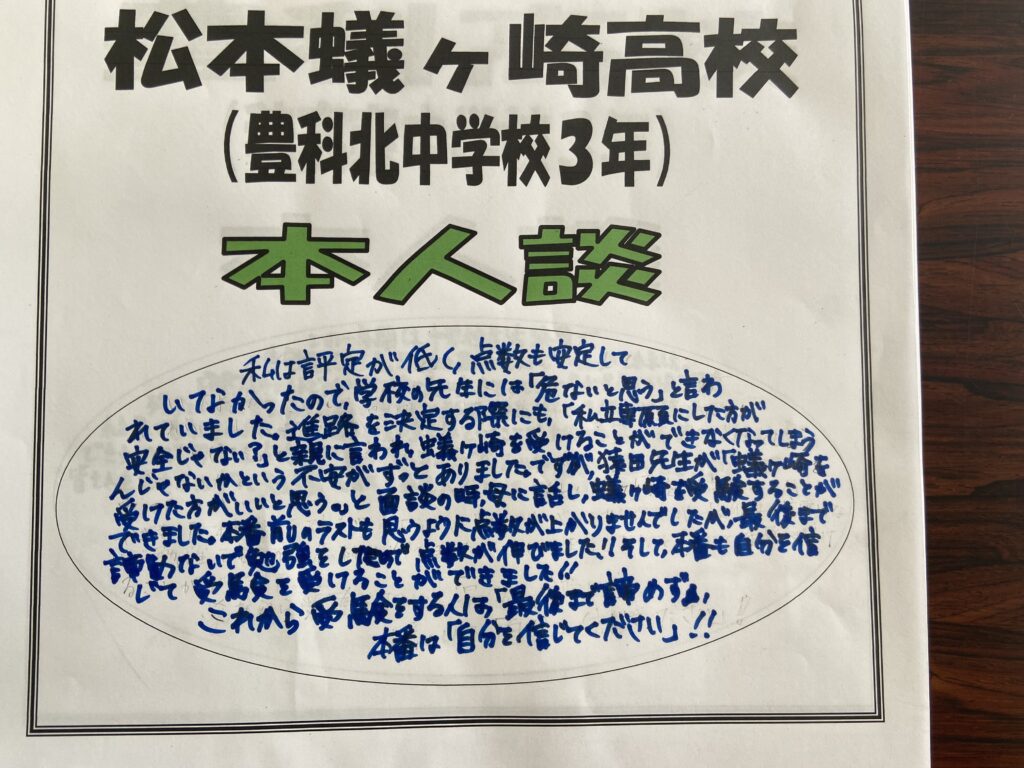 松本蟻ヶ崎高校
(豊科北中学校3年)
本人談
私は評定が低く、点数も安定して
いてよかったので、学校の先生には「危ないと思う」と言わ
れていました。進路を決定する際にも、「私立専願にした方が
安全じゃない?」と親に言われ、蟻ヶ崎を受けることができなくなってしまう
んじゃないかという不安がずっとありました。ですが、猿田先生が「蟻ヶ崎を
受けた方がいいと思う。」と面談の時母に話し、蟻ヶ崎を受験することが
できました。本番前のラストも思うように点数が上がりませんでしたが、最後まで
諦めないで勉強をしたので点数が伸びました!!そして、本番も自分を信
じて受験を受けることができました!!
これから受験をする人は、「最後まで諦めずに、
本番は「自分を信じてください」!!